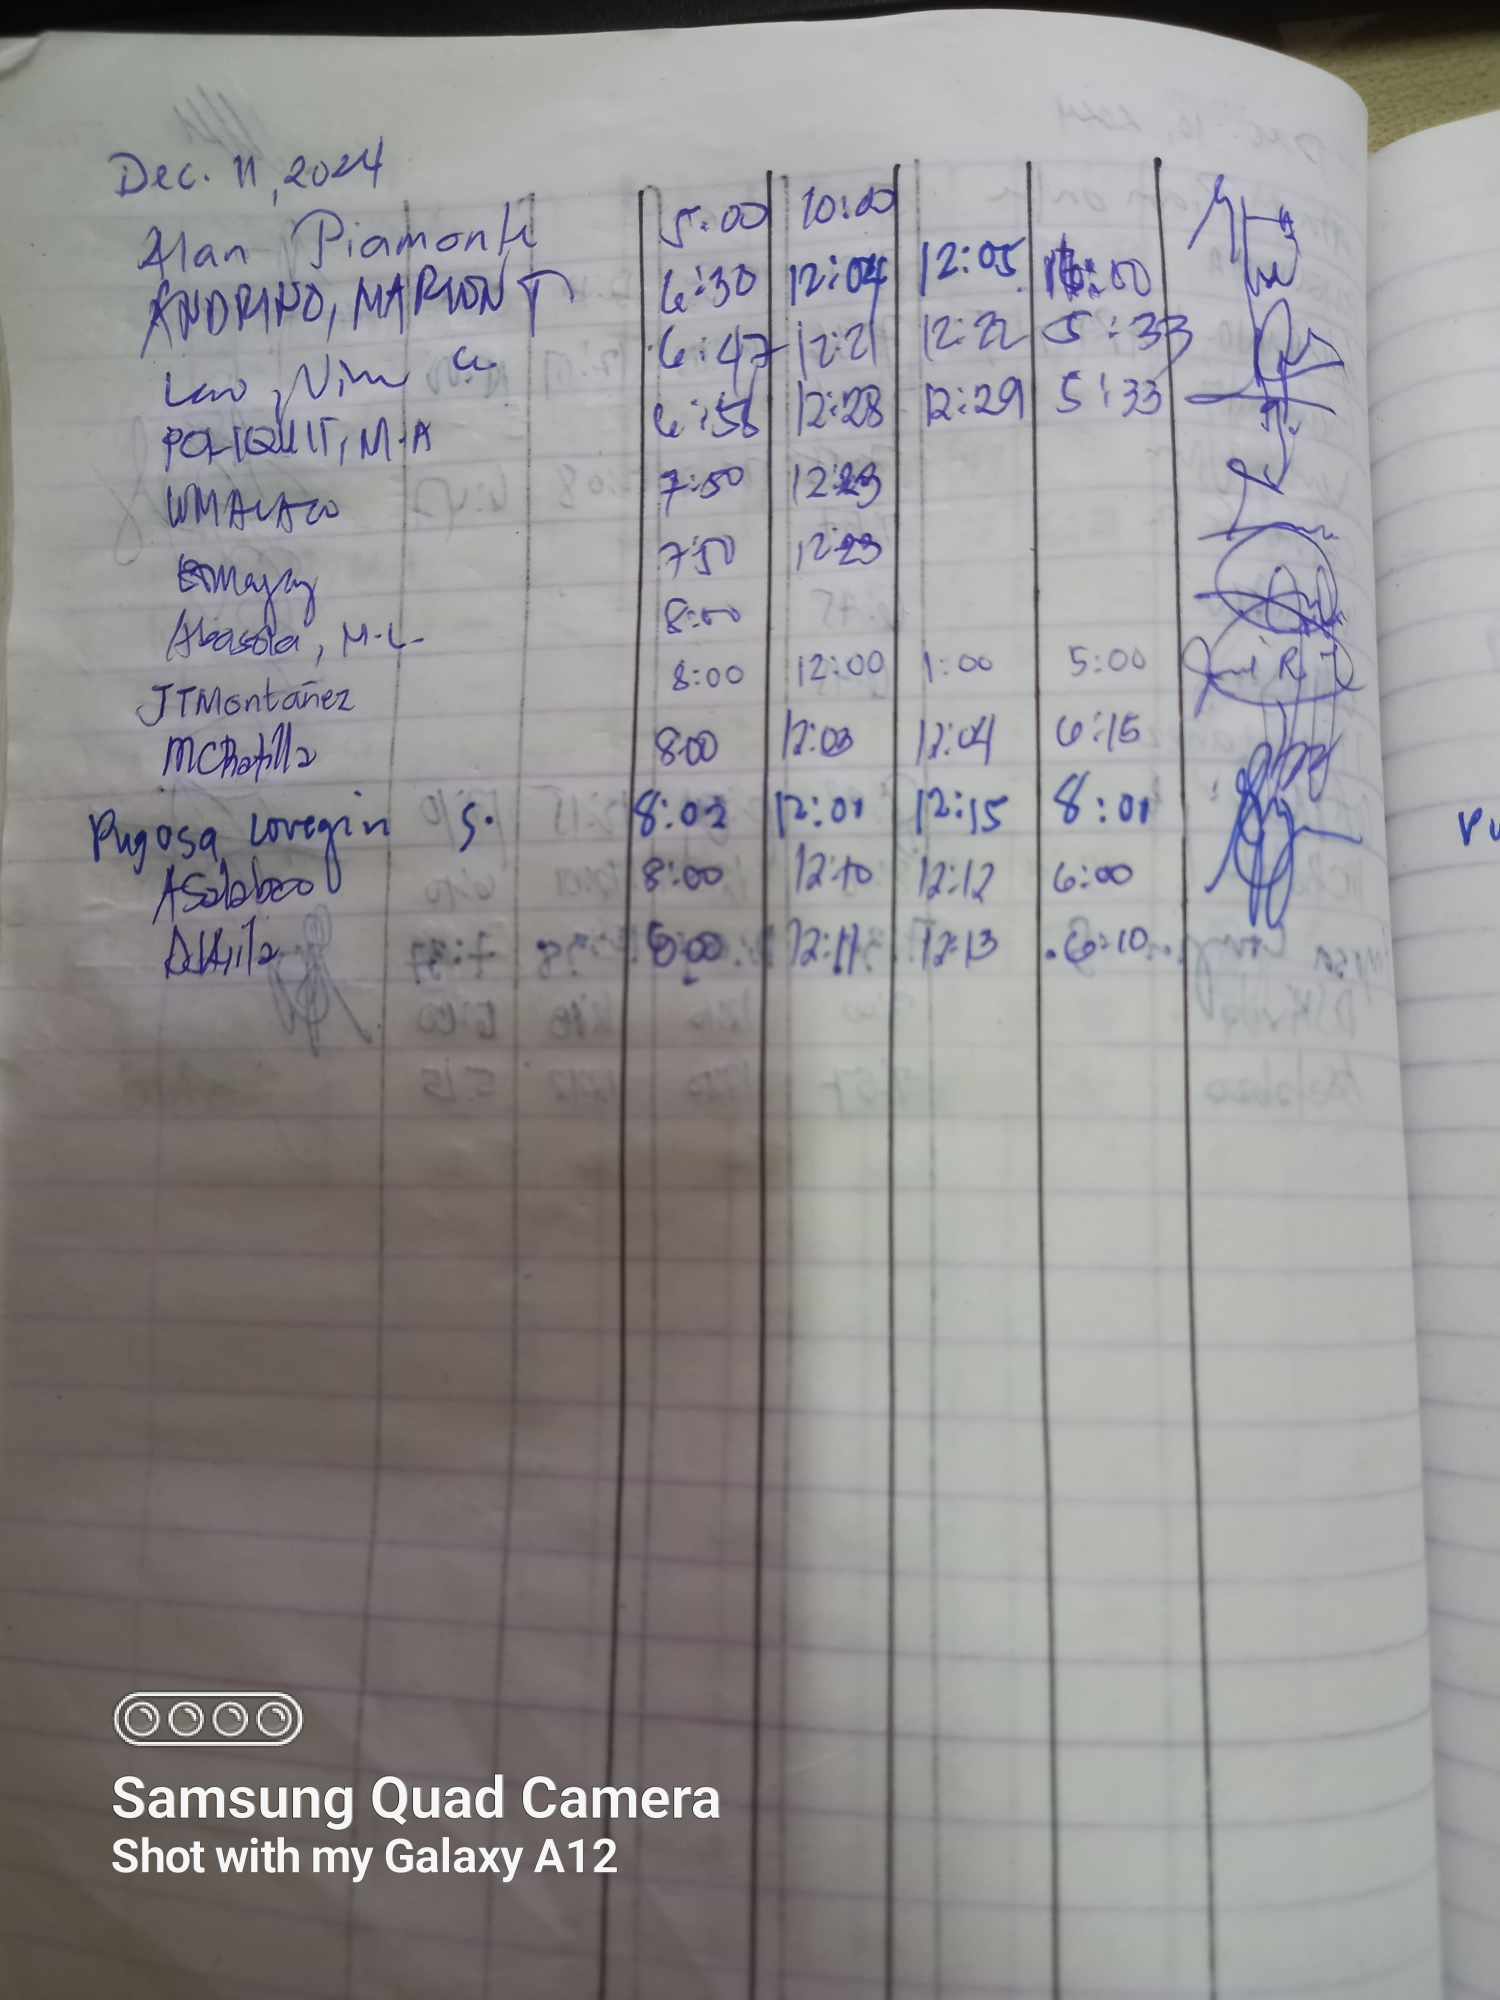 Dec. 11, 2024
Alan Piamonte 5:00 10:00
ANDRINO, MARVON T 6:30 12:04 12:05 :00
6:47 12:21 12:22 5:33
POLIQUIT, M.A 6:58 12:28 12:29 5:33
WMALAZO 7:50 12:23
7:50 12:23
Abasola, M.L 8:00
JTMontañez 8:00 12:00 1:00 5:00
MCBatilla 8:00 12:03 12:04 6:15
Pugosa Lovegin S. 8:02 12:01 12:15 8:01
ASalabao 8:00 12:10 12:12 6:00
8:00 12:11 12:13 6:10
Samsung Quad Camera
Shot with my Galaxy A12